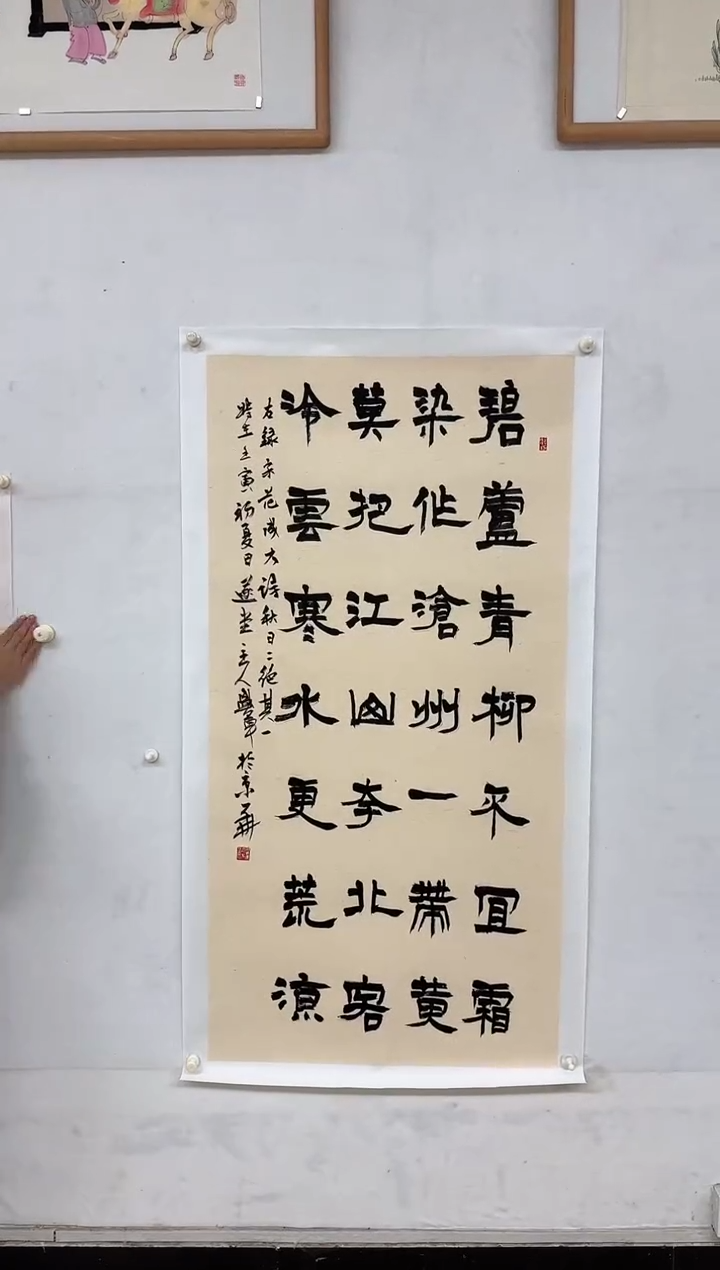 碧蘆青柳不冝霜
染作滄州一帶黄
莫把江山夸北客
冷雲寒水更荒涼
右録宋范成大詩秋日二絕其一
時在壬寅初夏日 堂主人 於京華